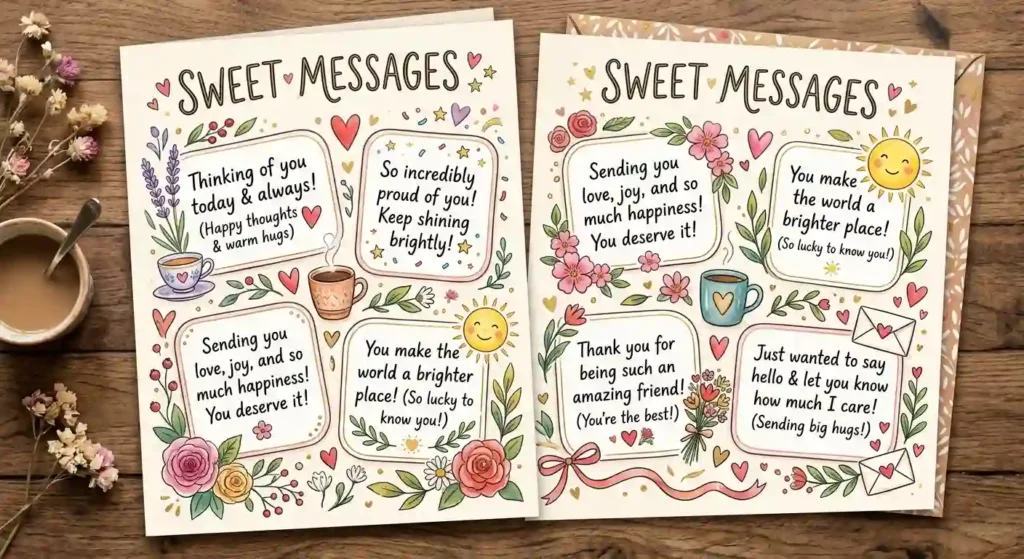 SWEET MESSAGES
Thinking of you
today & always!
(Happy thoughts
& warm hugs)
So incredibly
proud of you!
Keep shining
brightly!
Sending you
love, joy, and so
much happiness!
You deserve it!
You make the
world a brighter
place! (So lucky to
know you!)
SWEET MESSAGES
Sending you
love, joy, and so
much happiness!
You deserve it!
You make
the world a
brighter place!
(So lucky to know you!)
Thank you for
being such an
amazing friend!
(You're the best!)
Just wanted to say
hello & let you know
how much I care!
(Sending big hugs!)